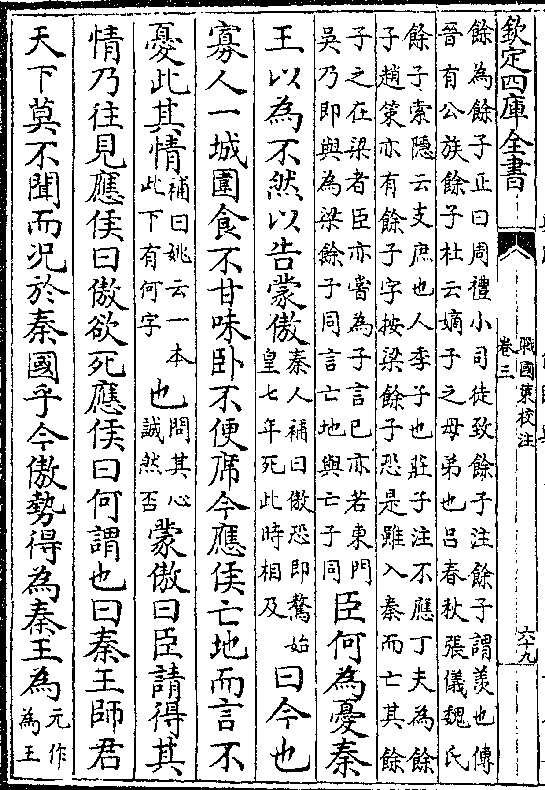 欽定四庫全書
戰國策校注
卷三
六十九
餘為餘子正曰周禮小司徒致餘子注餘子謂羡也傳
晉有公族餘子杜云嫡子之母弟也呂春秋張儀魏氏
餘子索隱云支庶也人季子也莊子注不應丁夫為餘
子趙策亦有餘子字按梁餘子恐是雖入秦而亡其餘
子之在梁者臣亦嘗為子言已亦若東門
吳乃即與為梁餘子同言亡地與亡子同
臣何為憂秦
王以為不然以告蒙傲
秦人補曰傲恐即驁始
皇七年死此時相及
曰今也
寡人一城圍食不甘味卧不便席今應侯亡地而言不
憂此其情
補曰姚云一本
此下有何字
也
問其心
誠然否
蒙傲曰臣請得其
情乃往見應侯曰傲欲死應侯曰何謂也曰秦王師君
天下莫不聞而况於秦國乎今傲勢得為秦王為
元作
為王